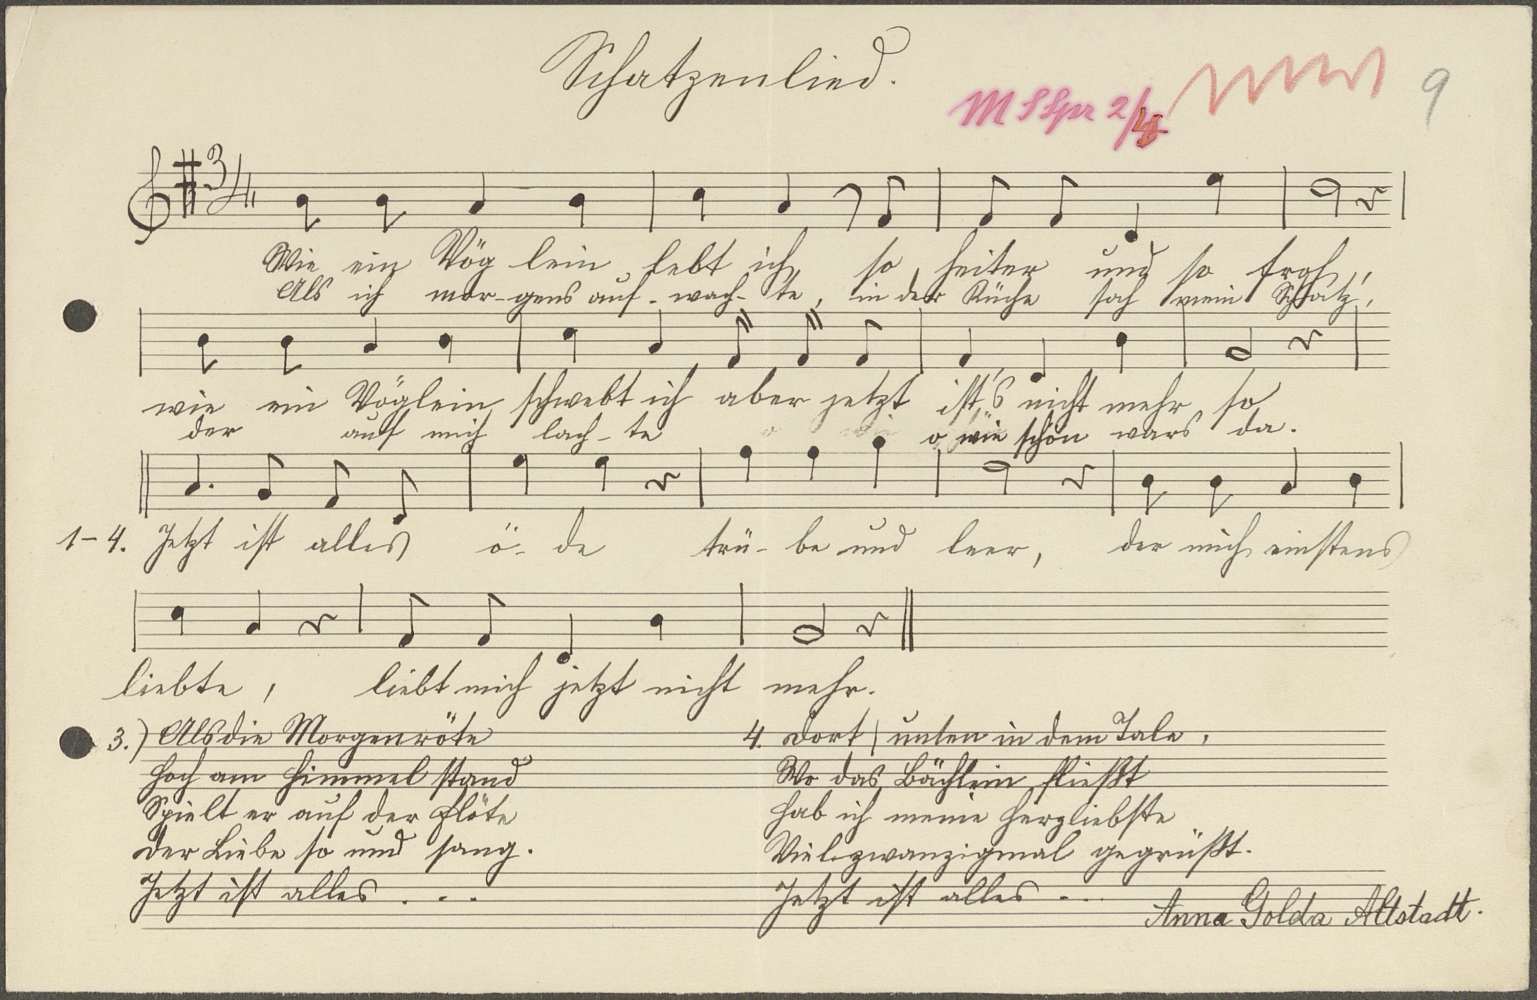 Schatzenlied.
M S Spr 2/4
9
3/4
Wie ein Vög lein lebt ich, so heiter und so froh,
Als ich mor-gens auf-wach-te, in der Küche sah mein Schatz,
wie ein Vöglein schwebt ich aber jetzt ist's nicht mehr so
der auf mich lach-te o wie schön wars da.
1-4. Jetzt ist alles ö-de trü-be und leer, der mich einstens
liebte, liebt mich jetzt nicht mehr.
3.) Als die Morgenröte
hoch am Himmel stand
Spielt er auf der Flöte
Der Liebe so und sang.
Jetzt ist alles . - -
4. Dort unten in dem Tale,
Wo das Bächlein fließt
hab ich meine herzliebste
Vielzwanzigmal gegrüßt.
Jetzt ist alles - - .
Anna Golda Altstadt.